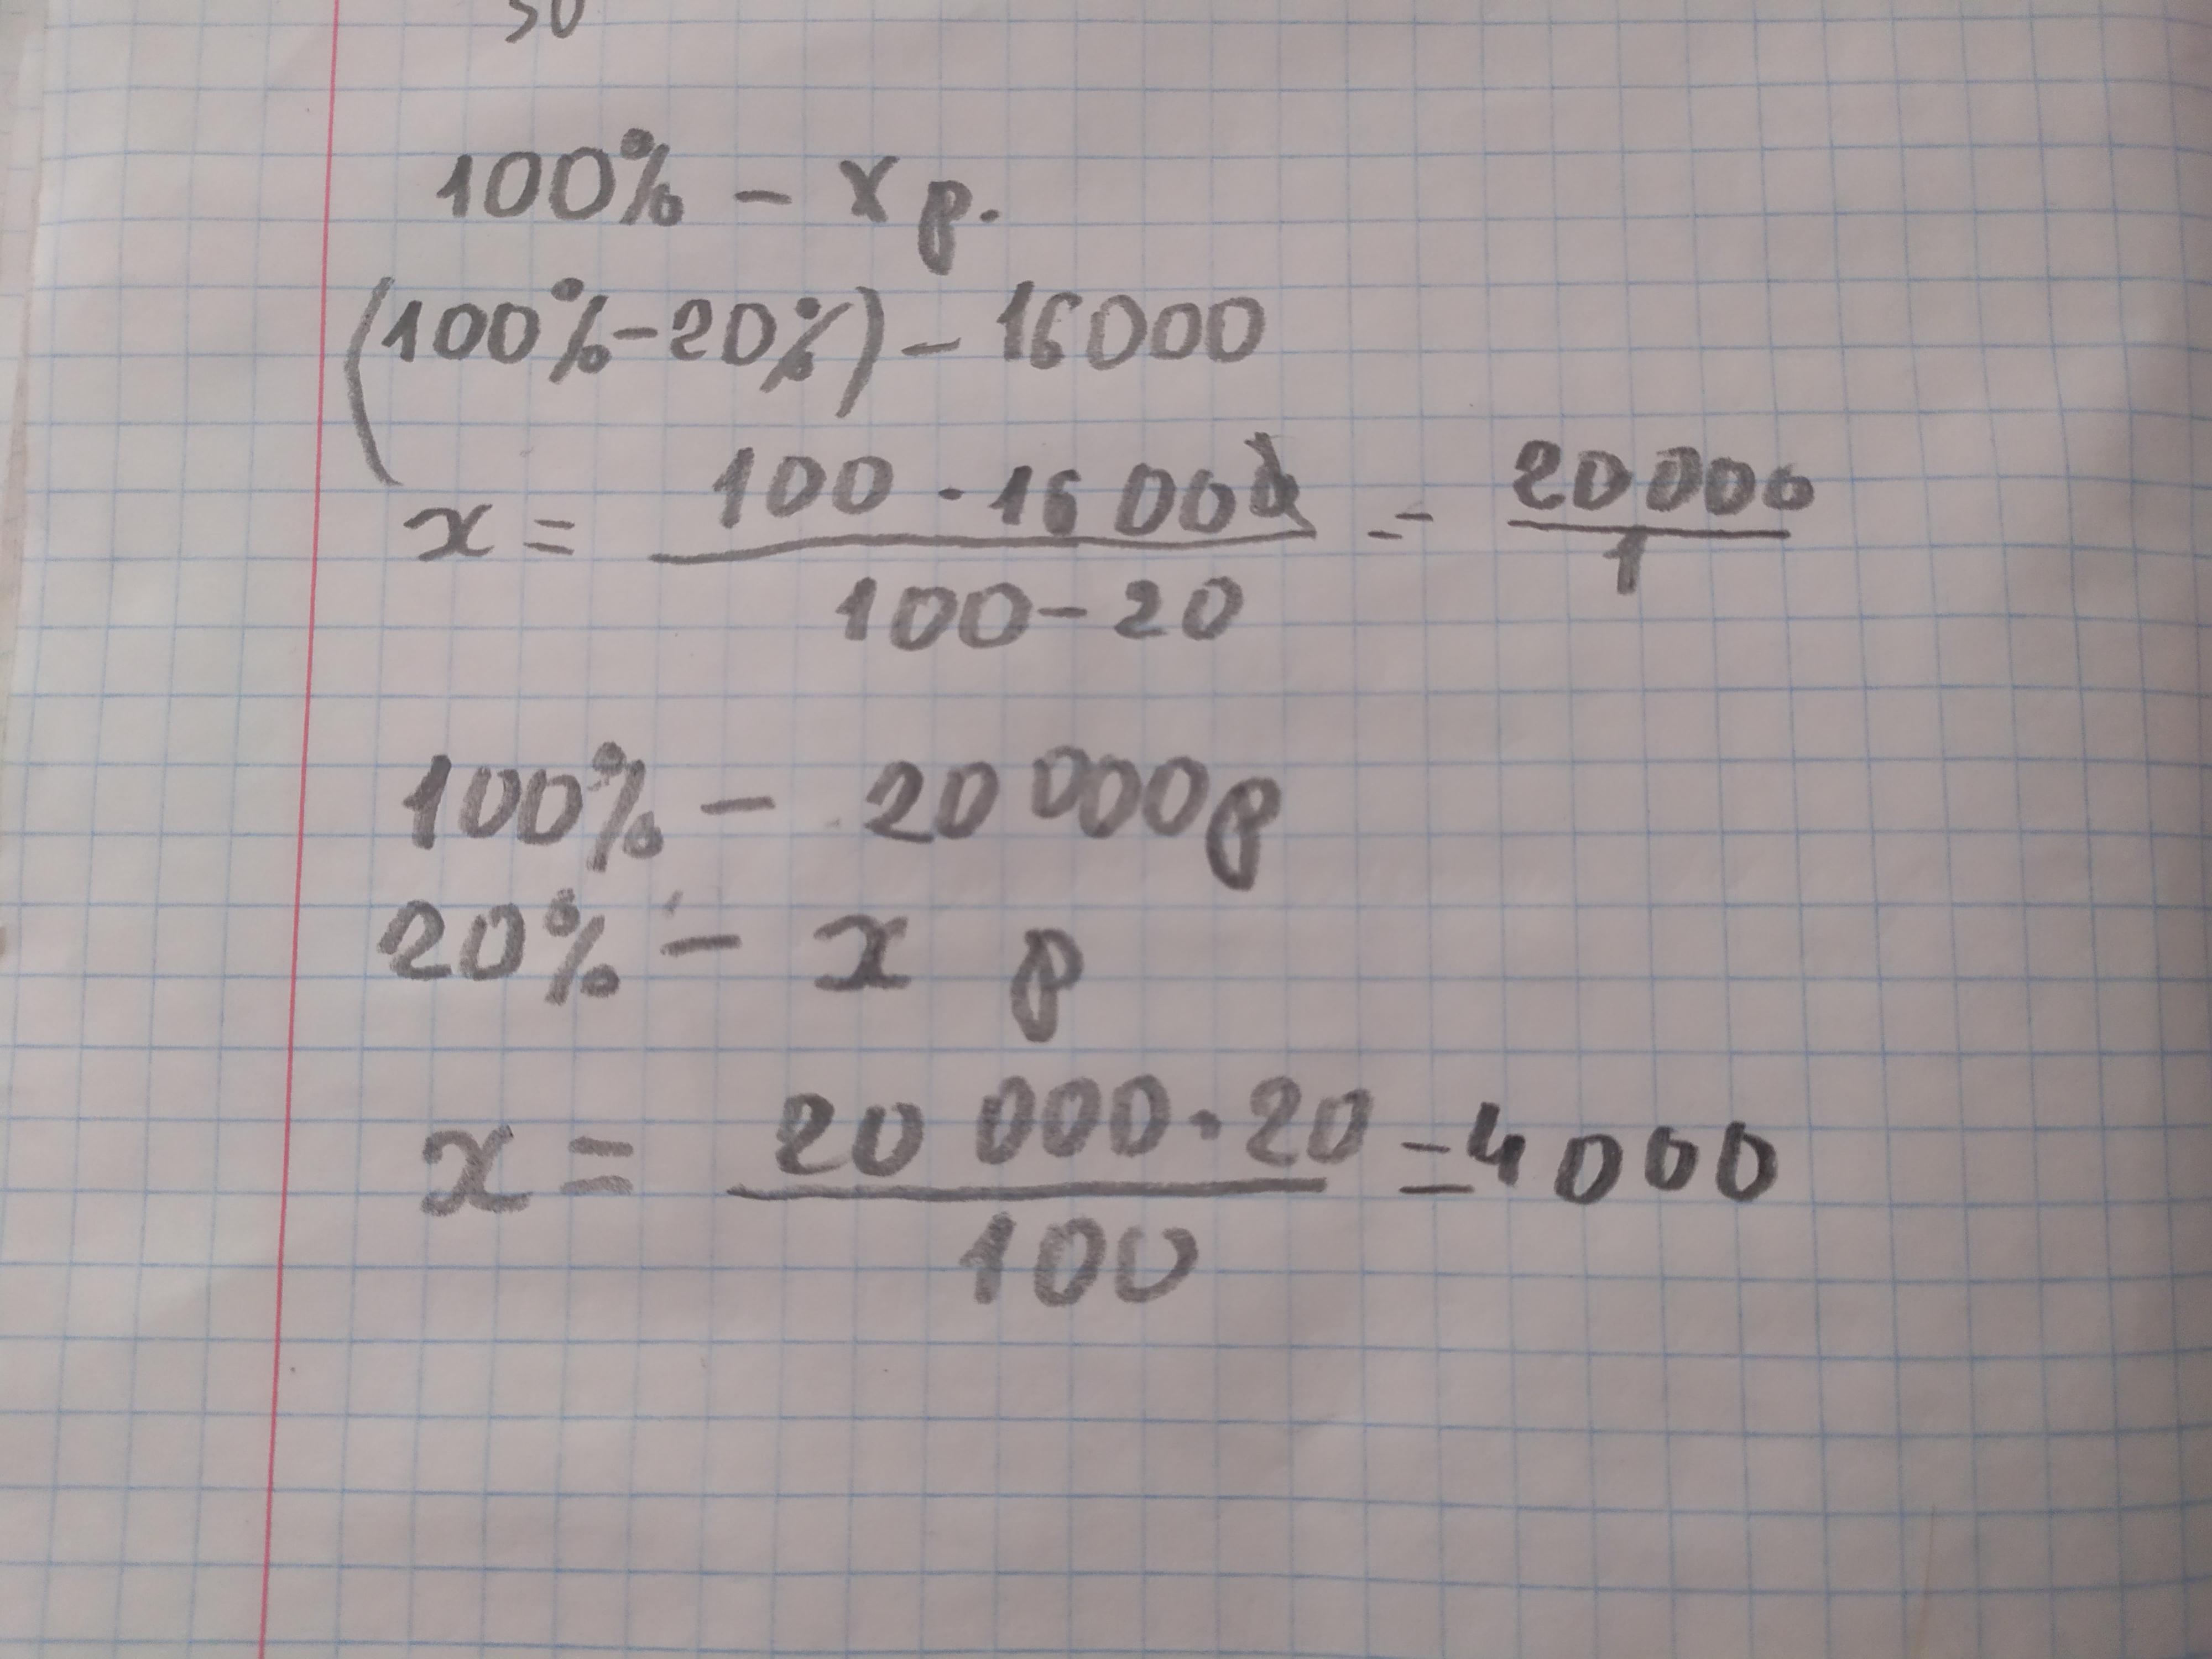 30
100% - x р.
(100%-20%) - 16000
x = 100 · 16 000 / 100-20 = 20 000 / 1
100% - 20 000р
20% - x р
x = 20 000 · 20 / 100 = 4 000